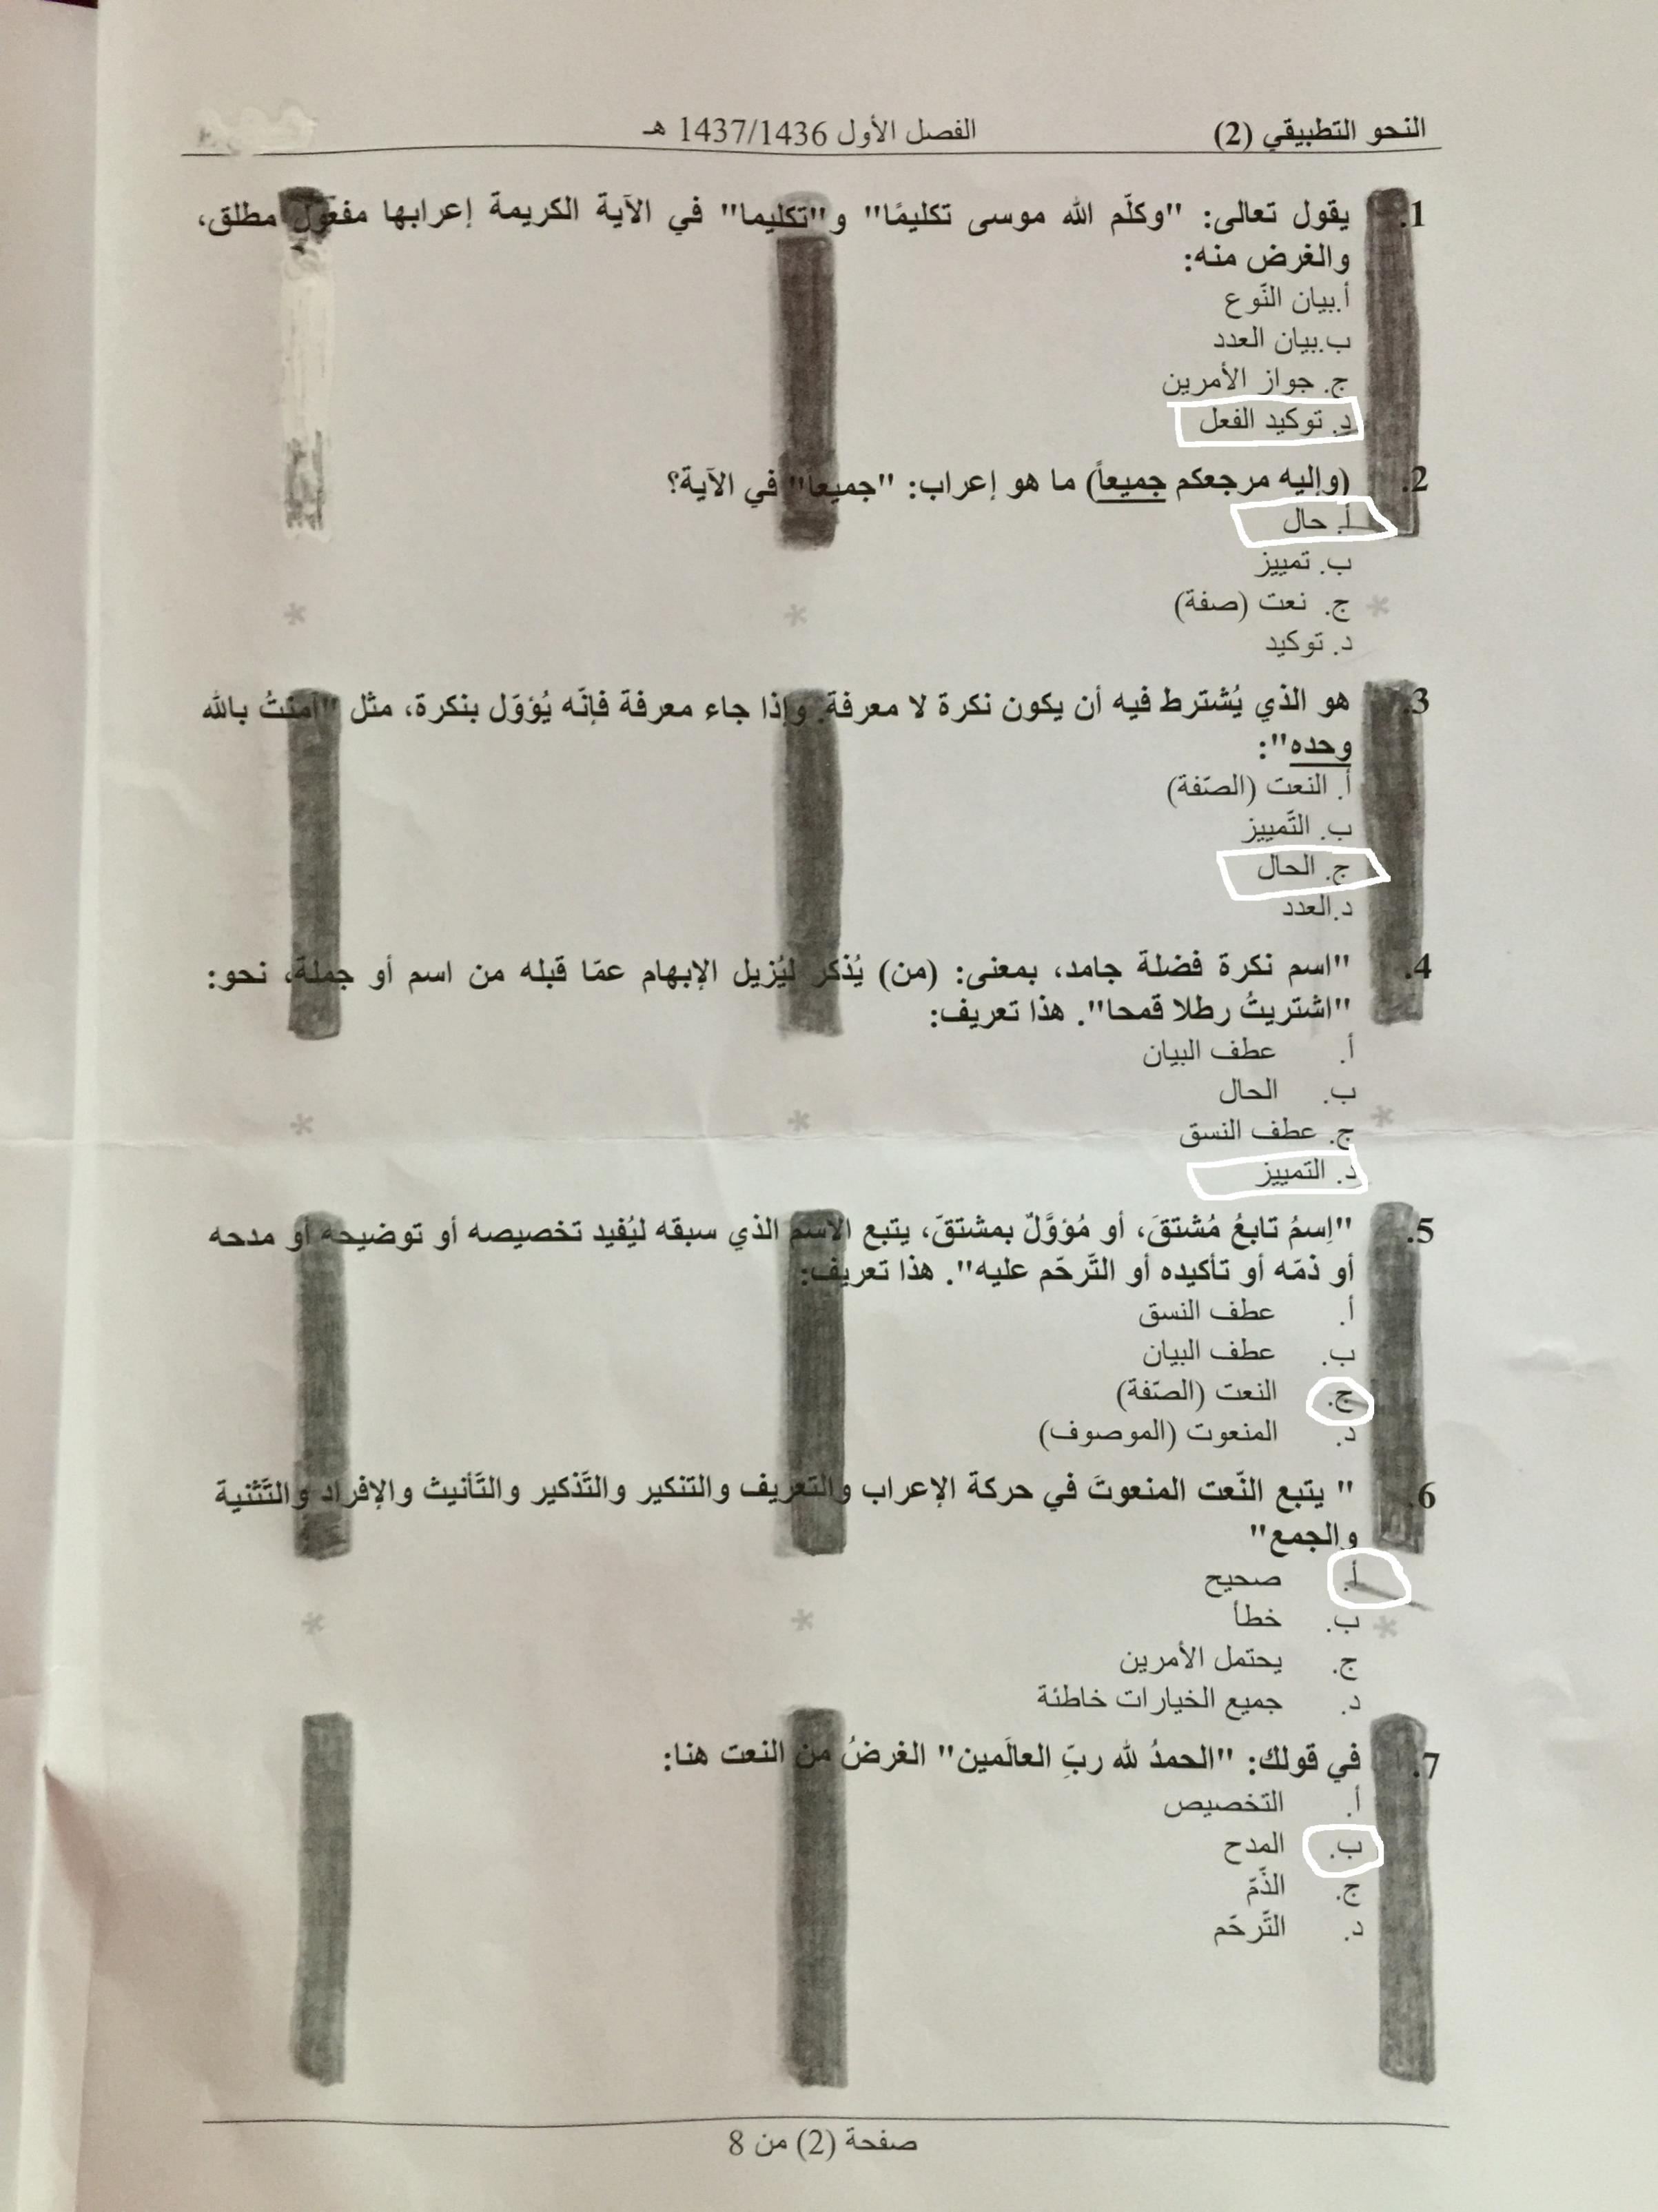 النحو التطبيقي (2) الفصل الأول 1437/1436 هـ
1. يقول تعالى: "وكلّم الله موسى تكليمًا" و"تكليما" في الآية الكريمة إعرابها مفعول مطلق،
والغرض منه:
أ.بيان النّوع
ب.بيان العدد
ج. جواز الأمرين
د. توكيد الفعل
2. (وإليه مرجعكم جميعاً) ما هو إعراب: "جميعا" في الآية؟
أ. حال
ب. تمييز
ج. نعت (صفة)
د. توكيد
3. هو الذي يُشترط فيه أن يكون نكرة لا معرفة. وإذا جاء معرفة فإنّه يُؤوّل بنكرة، مثل "آمنتُ بالله
وحده":
أ. النعت (الصّفة)
ب. التّمييز
ج. الحال
د.العدد
4. "اسم نكرة فضلة جامد، بمعنى: (من) يُذكر ليُزيل الإبهام عمّا قبله من اسم أو جملة، نحو:
"اشتريتُ رطلا قمحا". هذا تعريف:
أ. عطف البيان
ب. الحال
ج. عطف النسق
د. التمييز
5. "اِسمُ تابعُ مُشتقَ، أو مُؤوَّلٌ بمشتقَ، يتبع الاسم الذي سبقه ليُفيد تخصيصه أو توضيحه أو مدحه
أو ذمّه أو تأكيده أو التّرحّم عليه". هذا تعريف:
أ. عطف النسق
ب. عطف البيان
ج. النعت (الصّفة)
د. المنعوت (الموصوف)
6. " يتبع النّعت المنعوتَ في حركة الإعراب والتعريف والتنكير والتّذكير والتّأنيث والإفراد والتّثنية
والجمع"
أ. صحيح
ب. خطأ
ج. يحتمل الأمرين
د. جميع الخيارات خاطئة
7. في قولك: "الحمدُ لله ربِّ العالَمين" الغرضُ من النعت هنا:
أ. التخصيص
ب. المدح
ج. الذّمّ
د. التّرحّم
صفحة (2) من 8